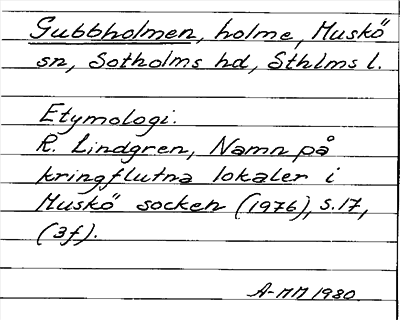 Gubbholmen, holme, Muskö
sn, Sotholms hd, Sthlms l.
Etymologi:
R. Lindgren, Namn på
kringflutna lokaler i
Muskö socken (1976), s.17,
(3f).
A-MM 1980